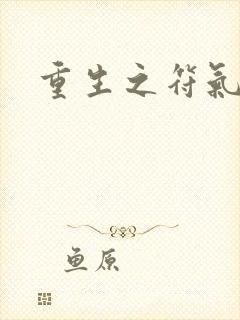 重生之符氣
鱼原